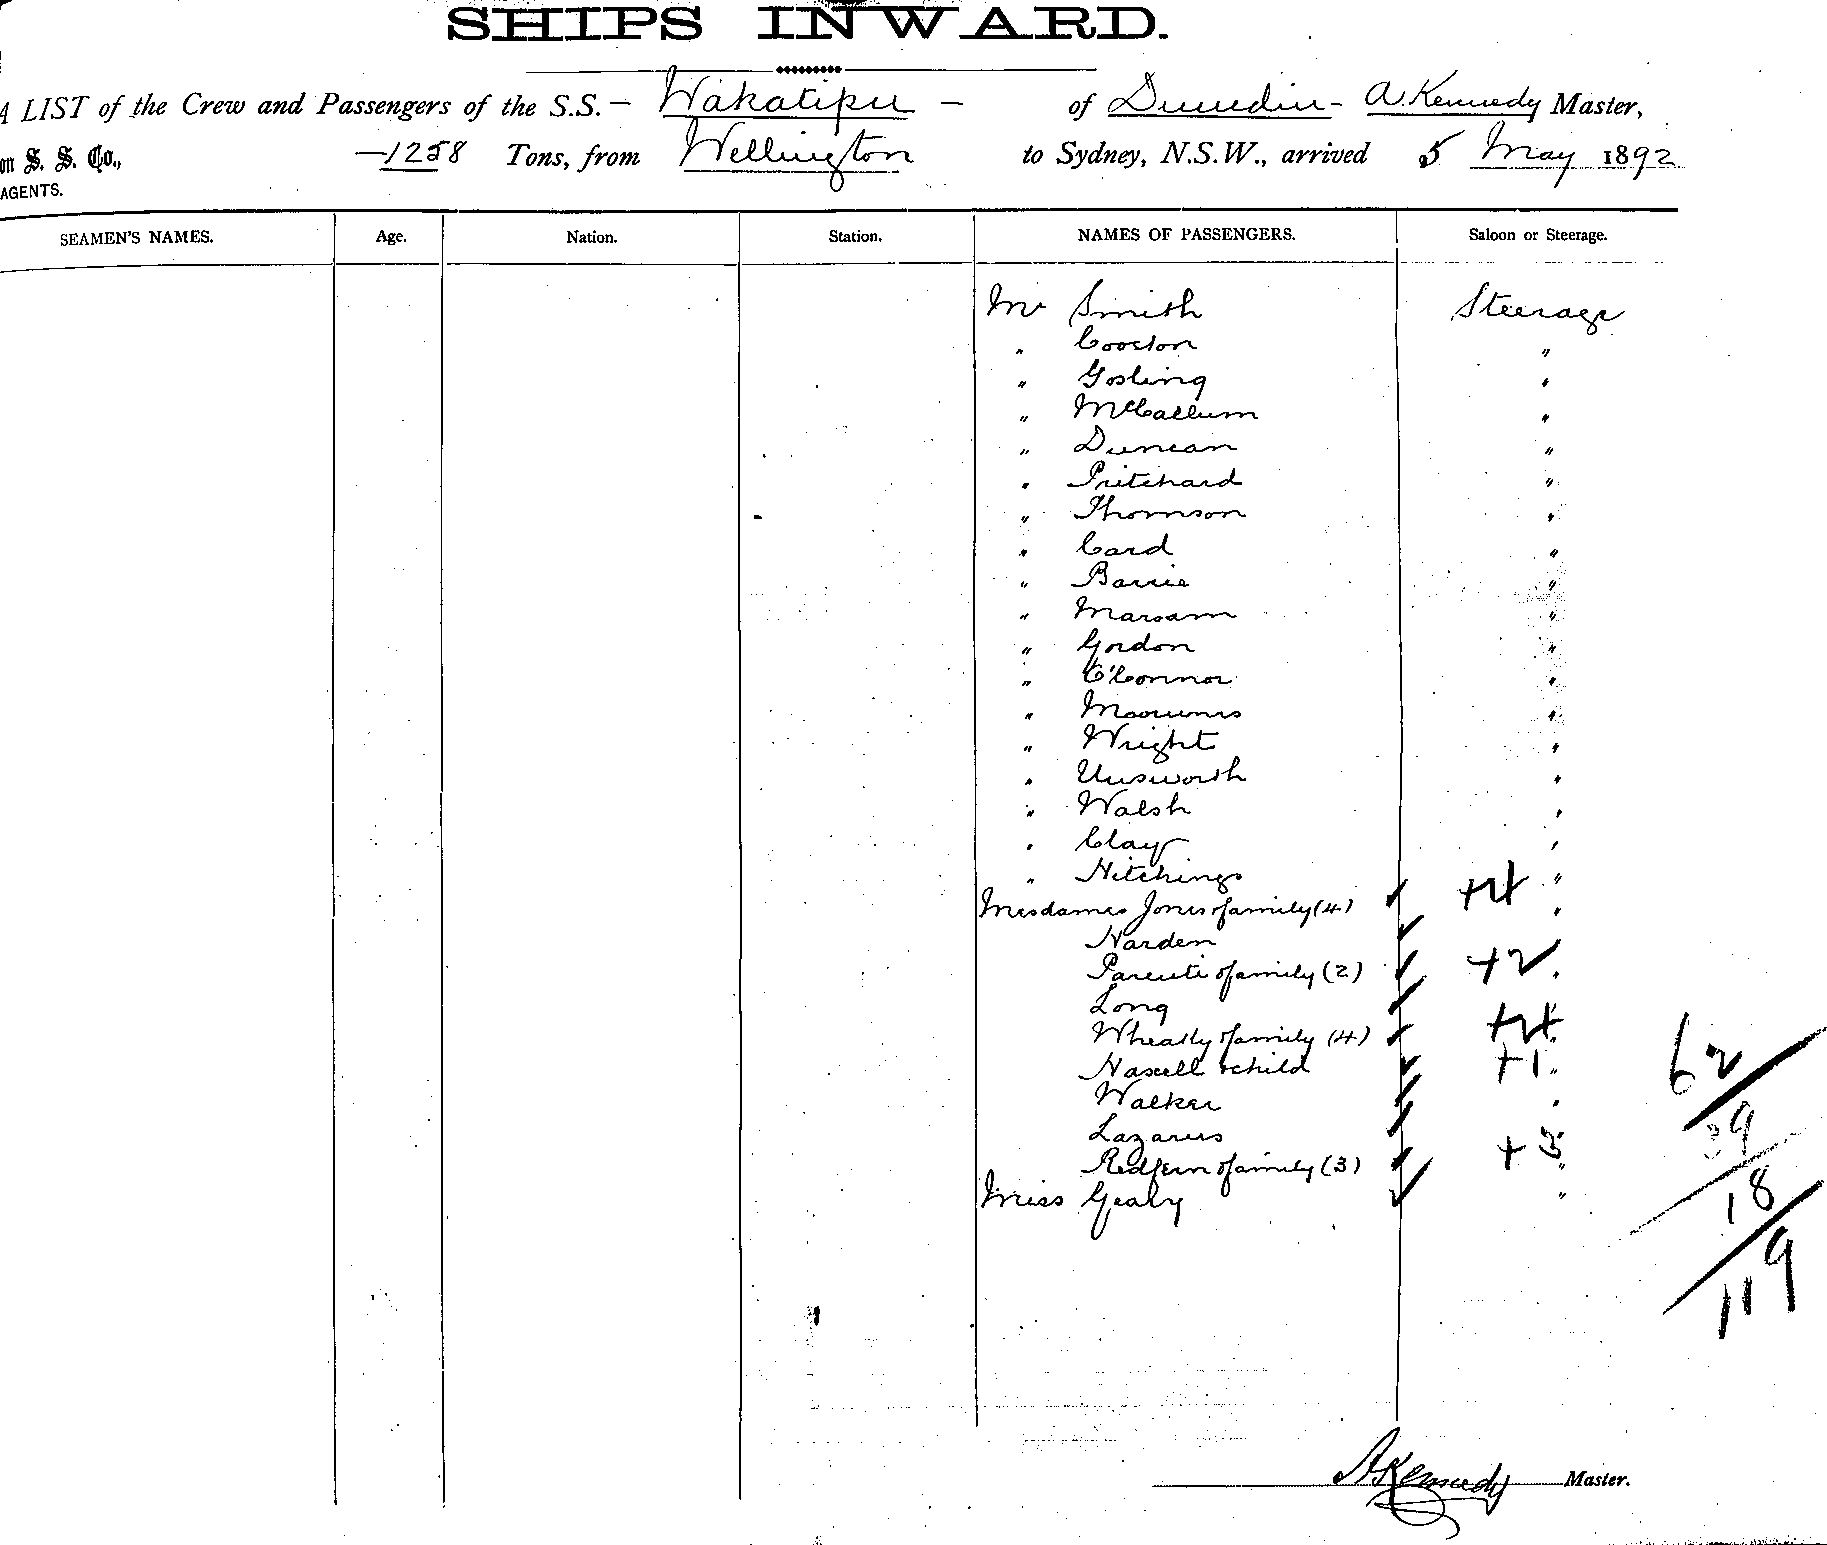 SHIPS INWARD.
A LIST of the Crew and Passengers of the S.S. — Wakatipu — of Dunedin - A. Kennedy Master,
on S. S. Co., — 1258 Tons, from Wellington to Sydney, N.S.W., arrived 5 May 1892
AGENTS.
SEAMEN'S NAMES. Age. Nation. Station. NAMES OF PASSENGERS. Saloon or Steerage.
Mr Smith Steerage
" Cooston "
" Gosling "
" McCallum "
" Duncan "
" Pritchard "
" Thomson "
" Card "
" Barrie "
" Marsam "
" Gordon "
" O'Connor "
" "
" Wright "
" Unsworth "
" Walsh "
" Clay "
" Hitchings "
Mesdames Jones & family (4) +4 "
Harden
Parenti & family (2) +2 "
Long
Wheatly & family (4) +4 "
Nasell & child +1 "
Walker "
Lazarus
Redfern & family (3) +3 "
Miss Gealy "
62
39
18
119
AKennedy Master.